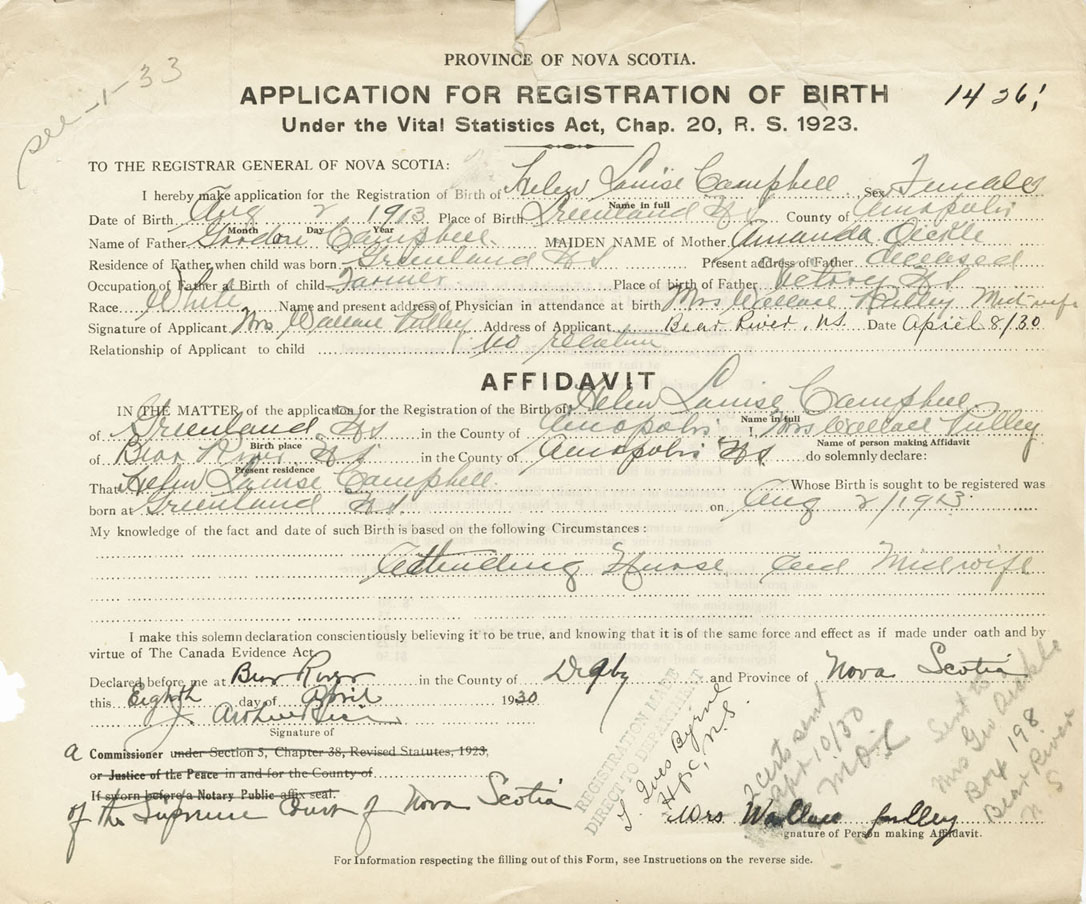 PROVINCE OF NOVA SCOTIA.
see-1-33
APPLICATION FOR REGISTRATION OF BIRTH 1426!
Under the Vital Statistics Act, Chap. 20, R. S. 1923.
TO THE REGISTRAR GENERAL OF NOVA SCOTIA:
I hereby make application for the Registration of Birth of Helen Louise Campbell. Sex Females
Name in full
Date of Birth Aug 2, 1913 Place of Birth Greenland NS County of Annopolis
Month Day Year
Name of Father Gordon Campbell. MAIDEN NAME of Mother Amanda Oickle
Residence of Father when child was born Greenland NS Present address of Father deceased
Occupation of Father at Birth of child Farmer Place of birth of Father Victory NS
Race White Name and present address of Physician in attendance at birth Mrs Wallace Pulley Midwife
Signature of Applicant Mrs, Wallace Pulley Address of Applicant Bear River, NS. Date April 8/30
Relationship of Applicant to child No relation
AFFIDAVIT
IN THE MATTER of the application for the Registration of the Birth of Helen Louise Campbell
Name in full
of Greenland NS in the County of Annopolis I, Mrs Wallace Pulley
Birth place Name of person making Affidavit
of Bear River NS in the County of Annopolis NS. do solemnly declare:
Present residence
That Helen Louise Campbell. Whose Birth is sought to be registered was
born at Greenland NS on Aug 2/1913
My knowledge of the fact and date of such Birth is based on the following Circumstances:
Attending Nurse and Midwife
I make this solemn declaration conscientiously believing it to be true, and knowing that it is of the same force and effect as if made under oath and by
virtue of The Canada Evidence Act.
Declared before me at Bear River in the County of Digby and Province of Nova Scotia
this Eighth day of April 1930
J. Arthur Rice
Signature of
a Commissioner under Section 5, Chapter 38, Revised Statutes, 1923,
or Justice of the Peace in and for the County of
If sworn before a Notary Public affix seal.
of the Supreme Court of Nova Scotia
REGISTRATION MADE
DIRECT TO DEPARTMENT
Hfx, N.S.
2 certs sent
Apr 10/30
Sent to
Mrs Geo Oickle
Box 198
Bear River
N S
Mrs Wallace Pulley
Signature of Person making Affidavit.
For Information respecting the filling out of this Form, see Instructions on the reverse side.